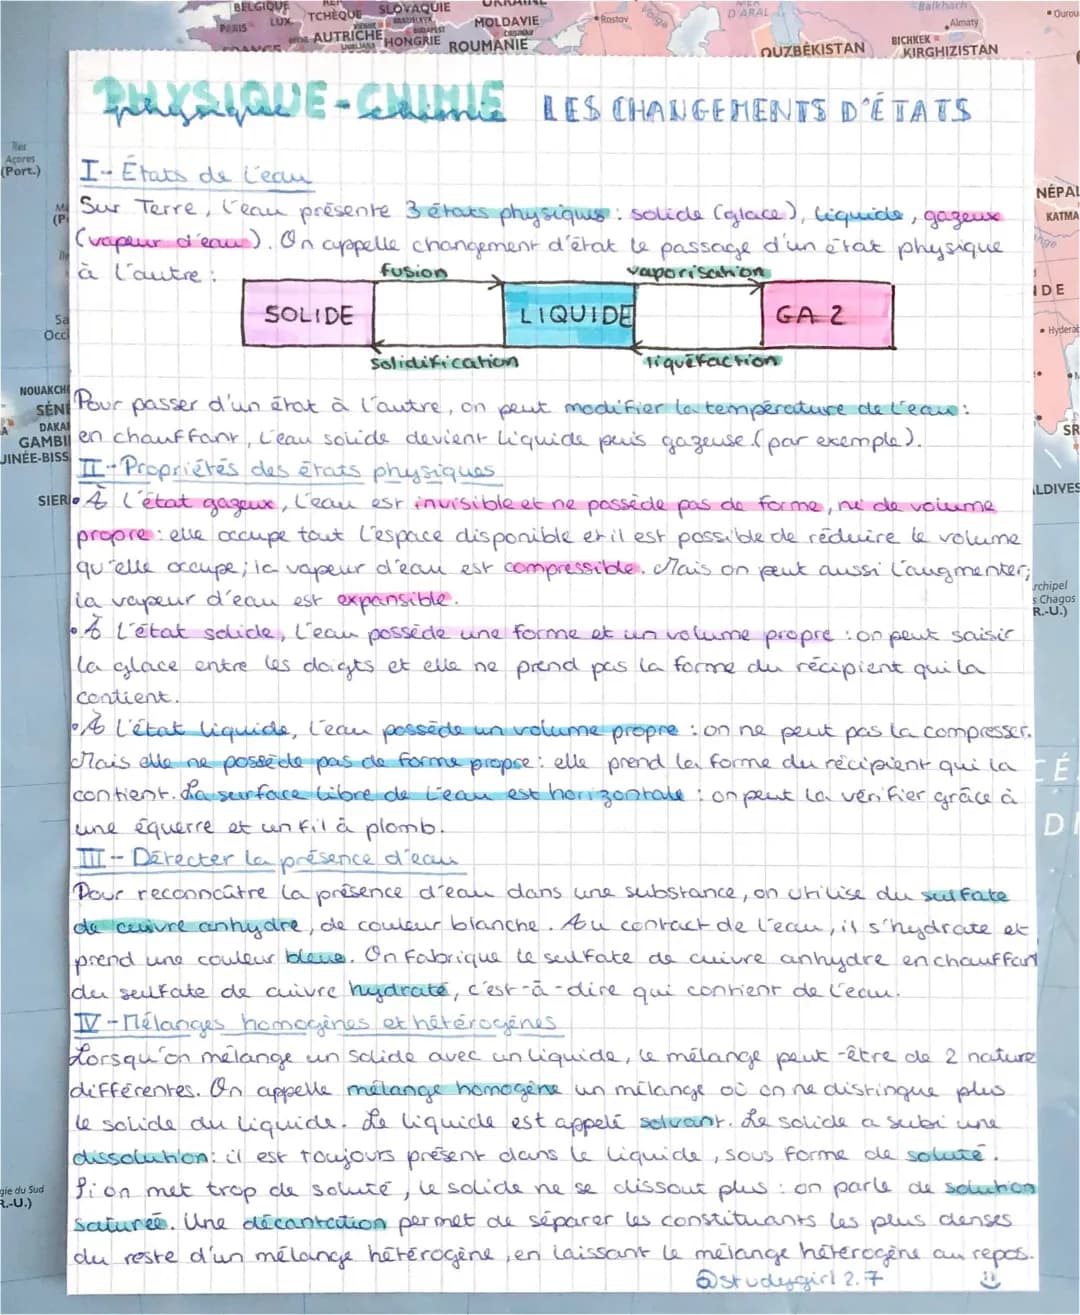 BELGIQUE
LUX.
PARIS
TCHÈQUE
SLOVAQUIE
AUTRICHE
HONGRIE
MOLDAVIE
ROUMANIE
UKRAINE
Rostov
Volga
D'ARAL
OUZBÉKISTAN
Balkhach
Almaty
BICHKEK
KIRGHIZISTAN
Ourou
PHYSIQUE-CHIMIE
physique chimie
LES CHANGEMENTS D'ÉTATS
Açores
(Port.)
I-- États de l'eau
NÉPAL
Sur Terre, l'eau présente 3 états physiques : solide (glace), liquide, gazeux
KATMA
(vapeur d'eau). On appelle changement d'état le passage d'un état physique
à l'autre :
fusion
vaporisation
SOLIDE
LIQUIDE
GAZ
solidification
liquéfaction
Sa
Occi
Hyderab
NOUAKCH
SÉNÉ
DAKA
GAMBI
UINÉE-BISS
SIER
Pour passer d'un état à l'autre, on peut modifier la température de l'eau :
en chauffant, l'eau solide devient liquide puis gazeuse (par exemple).
II-Propriétés des états physiques
LDIVES
• À l'état gazeux, l'eau est invisible et ne possède pas de forme, ni de volume
propre : elle occupe tout l'espace disponible et il est possible de réduire le volume
qu'elle occupe; la vapeur d'eau est compressible. Mais on peut aussi l'augmenter;
la vapeur d'eau est expansible.
rchipel
s Chagos
R.-U.)
• À l'état solide, l'eau possède une forme et un volume propre : on peut saisir
la glace entre les doigts et elle ne prend pas la forme du récipient qui la
contient.
• À l'état liquide, l'eau possède un volume propre : on ne peut pas la compresser.
Mais elle ne possède pas de forme propre : elle prend la forme du récipient qui la
contient. La surface libre de l'eau est horizontale : on peut la vérifier grâce à
une équerre et un fil à plomb.
III-- Détecter la présence d'eau
Pour reconnaître la présence d'eau dans une substance, on utilise du sulfate
de cuivre anhydre, de couleur blanche. Au contact de l'eau, il s'hydrate et
prend une couleur bleue. On fabrique le sulfate de cuivre anhydre en chauffant
du sulfate de cuivre hydraté, c'est-à-dire qui contient de l'eau.
IV-Mélanges homogènes et hétérogènes
Lorsqu'on mélange un solide avec un liquide, le mélange peut-être de 2 nature
différentes. On appelle mélange homogène un mélange où on ne distingue plus
le solide du liquide. Le liquide est appelé solvant. Le solide a subi une
dissolution : il est toujours présent dans le liquide, sous forme de soluté.
Si on met trop de soluté, le solide ne se dissout plus : on parle de solution
saturée. Une décantation permet de séparer les constituants les plus denses
du reste d'un mélange hétérogène, en laissant le mélange hétérogène au repos.
gie du Sud
R.-U.)
@studygirl2.7